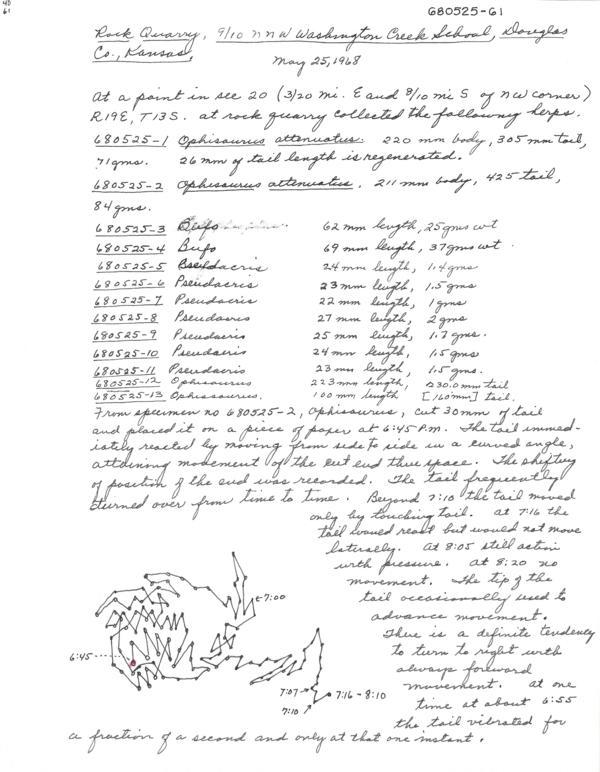 40
61
680525-61
Rock Quarry, 9/10 N NW Washington Creek School, Douglas
Co., Kansas,
May 25, 1968
At a point in sec 20 (3/20 mi. E and 8/10 mi S of NW corner)
R19E, T13S. at rock quarry collected the following herps.
680525-1 Ophisaurus attenuatus. 220 mm body, 305 mm tail,
71 gms. 26 mm of tail length is regenerated.
680525-2 Ophisaurus attenuatus, 211 mm body, 425 tail,
84 gms.
680525-3 Bufo 62 mm length, 25 gms wt
680525-4 Bufo 69 mm length, 37 gms wt.
680525-5 Pseudacris 24 mm length, 1.4 gms
680525-6 Pseudacris 23 mm length, 1.5 gms
680525-7 Pseudacris 22 mm length, 1 gms
680525-8 Pseudacris 27 mm length, 2 gms
680525-9 Pseudacris 25 mm length, 1.7 gms.
680525-10 Pseudacris 24 mm length, 1.5 gms
680525-11 Pseudacris 23 mm length, 1.5 gms.
680525-12 Ophisaurus 223 mm length, 230.0 mm tail
680525-13 Ophisaurus. 100 mm length [160 mm] tail.
From specimen no 680525-2, Ophisaurus, cut 30 mm of tail
and placed it on a piece of paper at 6:45 P.M. The tail immed-
iately reacted by moving from side to side in a curved angle,
attaining movement of the cut end thru space. The shifting
of position of the end was recorded. The tail frequently
turned over from time to time. Beyond 7:10 the tail moved
only by touching tail. at 7:16 the
tail would react but would not move
laterally. At 8:05 still action
with pressure. at 8:20 no
movement. The tip of the
tail occasionally used to
advance movement.
There is a definite tendency
to turn to right with
always forward
movement. at one
time at about 6:55
the tail vibrated for
a fraction of a second and only at that one instant.
7:00
6:45
7:07
7:16 - 8:10
7:10